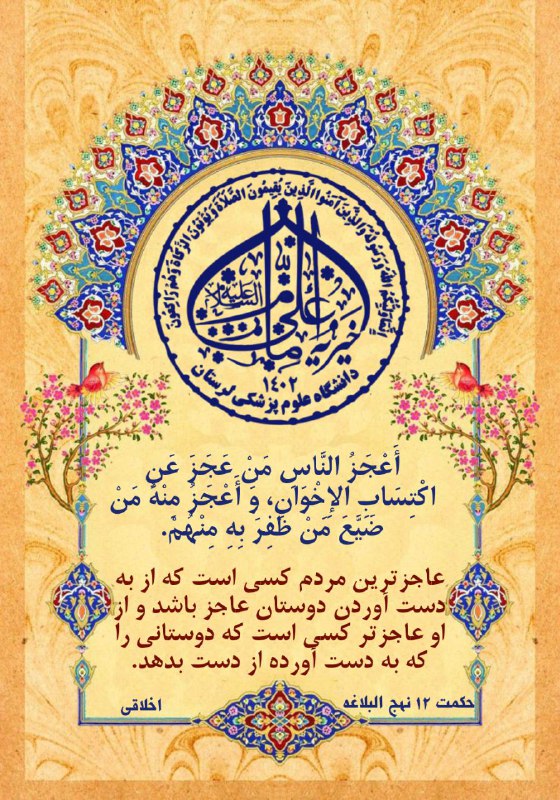 إِنَّمَا وَلِيُّكُمُ اللَّهُ وَرَسُولُهُ وَالَّذِينَ آمَنُوا الَّذِينَ يُقِيمُونَ الصَّلَاةَ وَيُؤْتُونَ الزَّكَاةَ وَهُمْ رَاكِعُونَ
علی
علیه السلام
خیریه
۱۴۰۲
دانشگاه علوم پزشکی لرستان
أَعْجَزُ النَّاسِ مَنْ عَجَزَ عَنِ
اكْتِسَابِ الإِخْوَانِ، وَ أَعْجَزُ مِنْهُ مَنْ
ضَيَّعَ مَنْ ظَفِرَ بِهِ مِنْهُمْ.
عاجزترین مردم کسی است که از به
دست آوردن دوستان عاجز باشد و از
او عاجزتر کسی است که دوستانی را
که به دست آورده از دست بدهد.
حکمت ۱۲ نهج البلاغه
اخلاقی